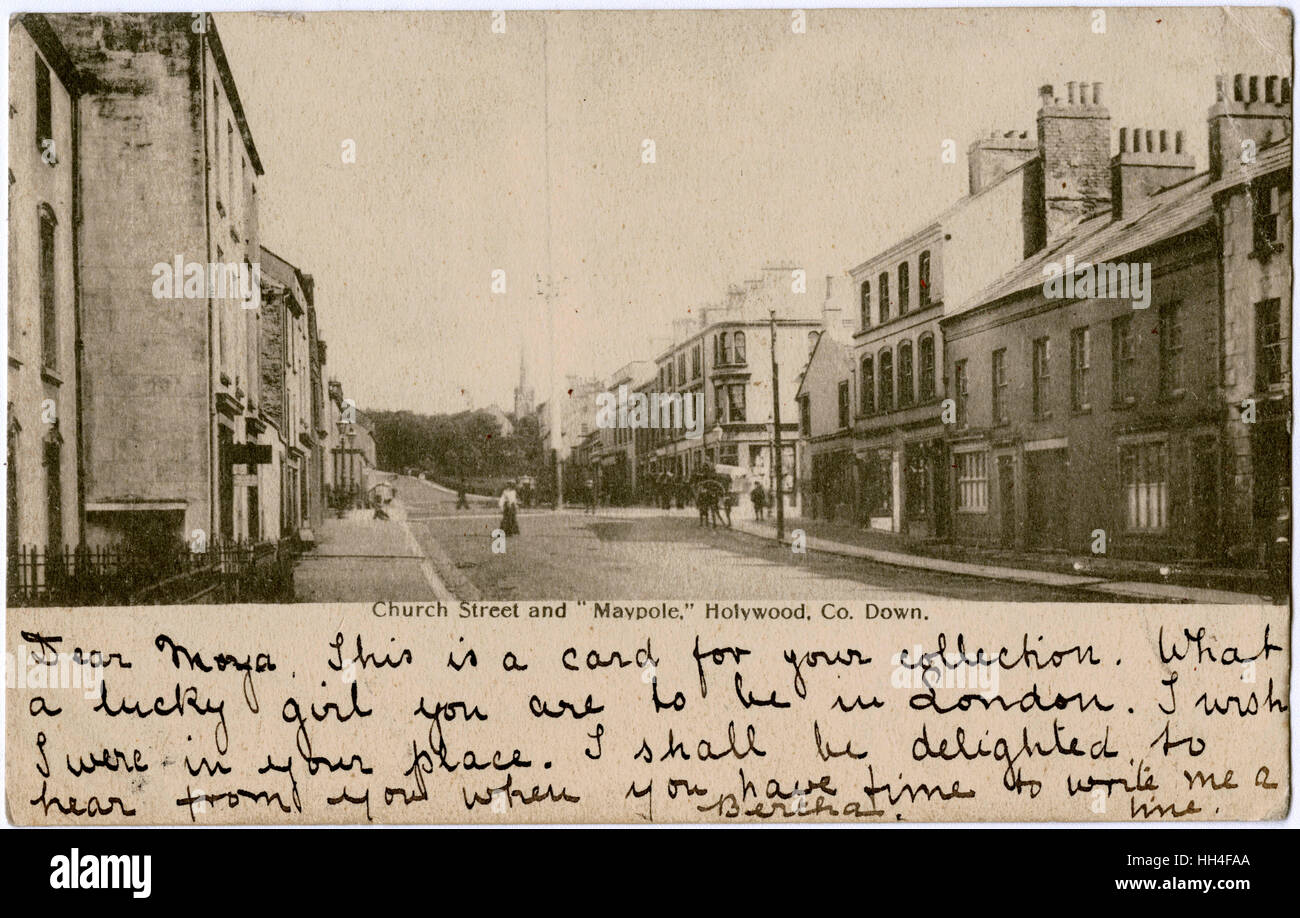 Church Street and "Maypole," Holywood, Co. Down.
Dear Moya, This is a card for your collection. What
a lucky girl you are to be in London. I wish
I were in your place. I shall be delighted to
hear from you when you have time to write me a
line.
Bertha.
alamy
alamy
Image ID: HH4FAA
www.alamy.com